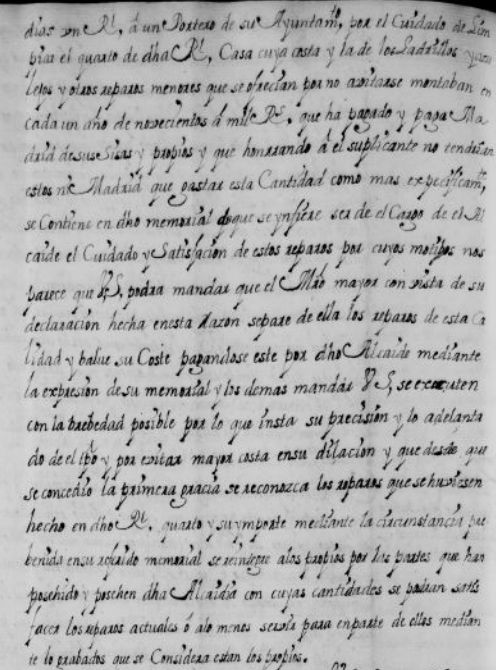 dias con Rl, á un Portero de su Ayuntamto, por el Cuidado de Lim
piar el quarto de dha Rl, Casa cuya costa y la de los Ladrillos
lejos y otros reparos menores que se ofrecian por no avitarse montaban en
cada un año de novecientos á mill Rs, que ha pagado y paga Ma
drid de sus Sisas y propios y que honrrando á el suplicante no tendrian
estos ni Madrid que gastar esta Cantidad como mas expecificamte
se Contiene en dho memorial de que se ynfiere ser de el Cargo de el Al
caide el Cuidado y Satisfacion de estos reparos por cuyos motibos nos
parece que VS, podra mandar que el Mro mayor con vista de su
declaracion hecha enesta Razon separe de ella los reparos de esta Ca
lidad y balue su Coste pagandose este por dho Alcaide mediante
la expresion de su memorial y los demas mandar VS, se executen
con la brebedad posible por lo que insta su precision y lo adelanta
do de el tpo y por evitar mayor costa ensu dilacion y que desde que
se concedio la primera gracia se reconozca los reparos que se huviesen
hecho en dho Rl, quarto y su ymporte mediante la circunstancia pre
benida ensu referido memorial se reintegre alos propios por las partes que han
poschido y poschen dha Alcaidia con cuyas cantidades se podran satis
facer los reparos actuales ó alo menos servir para enparte de ellos median
te lo grabados que se Considera estan los propios.